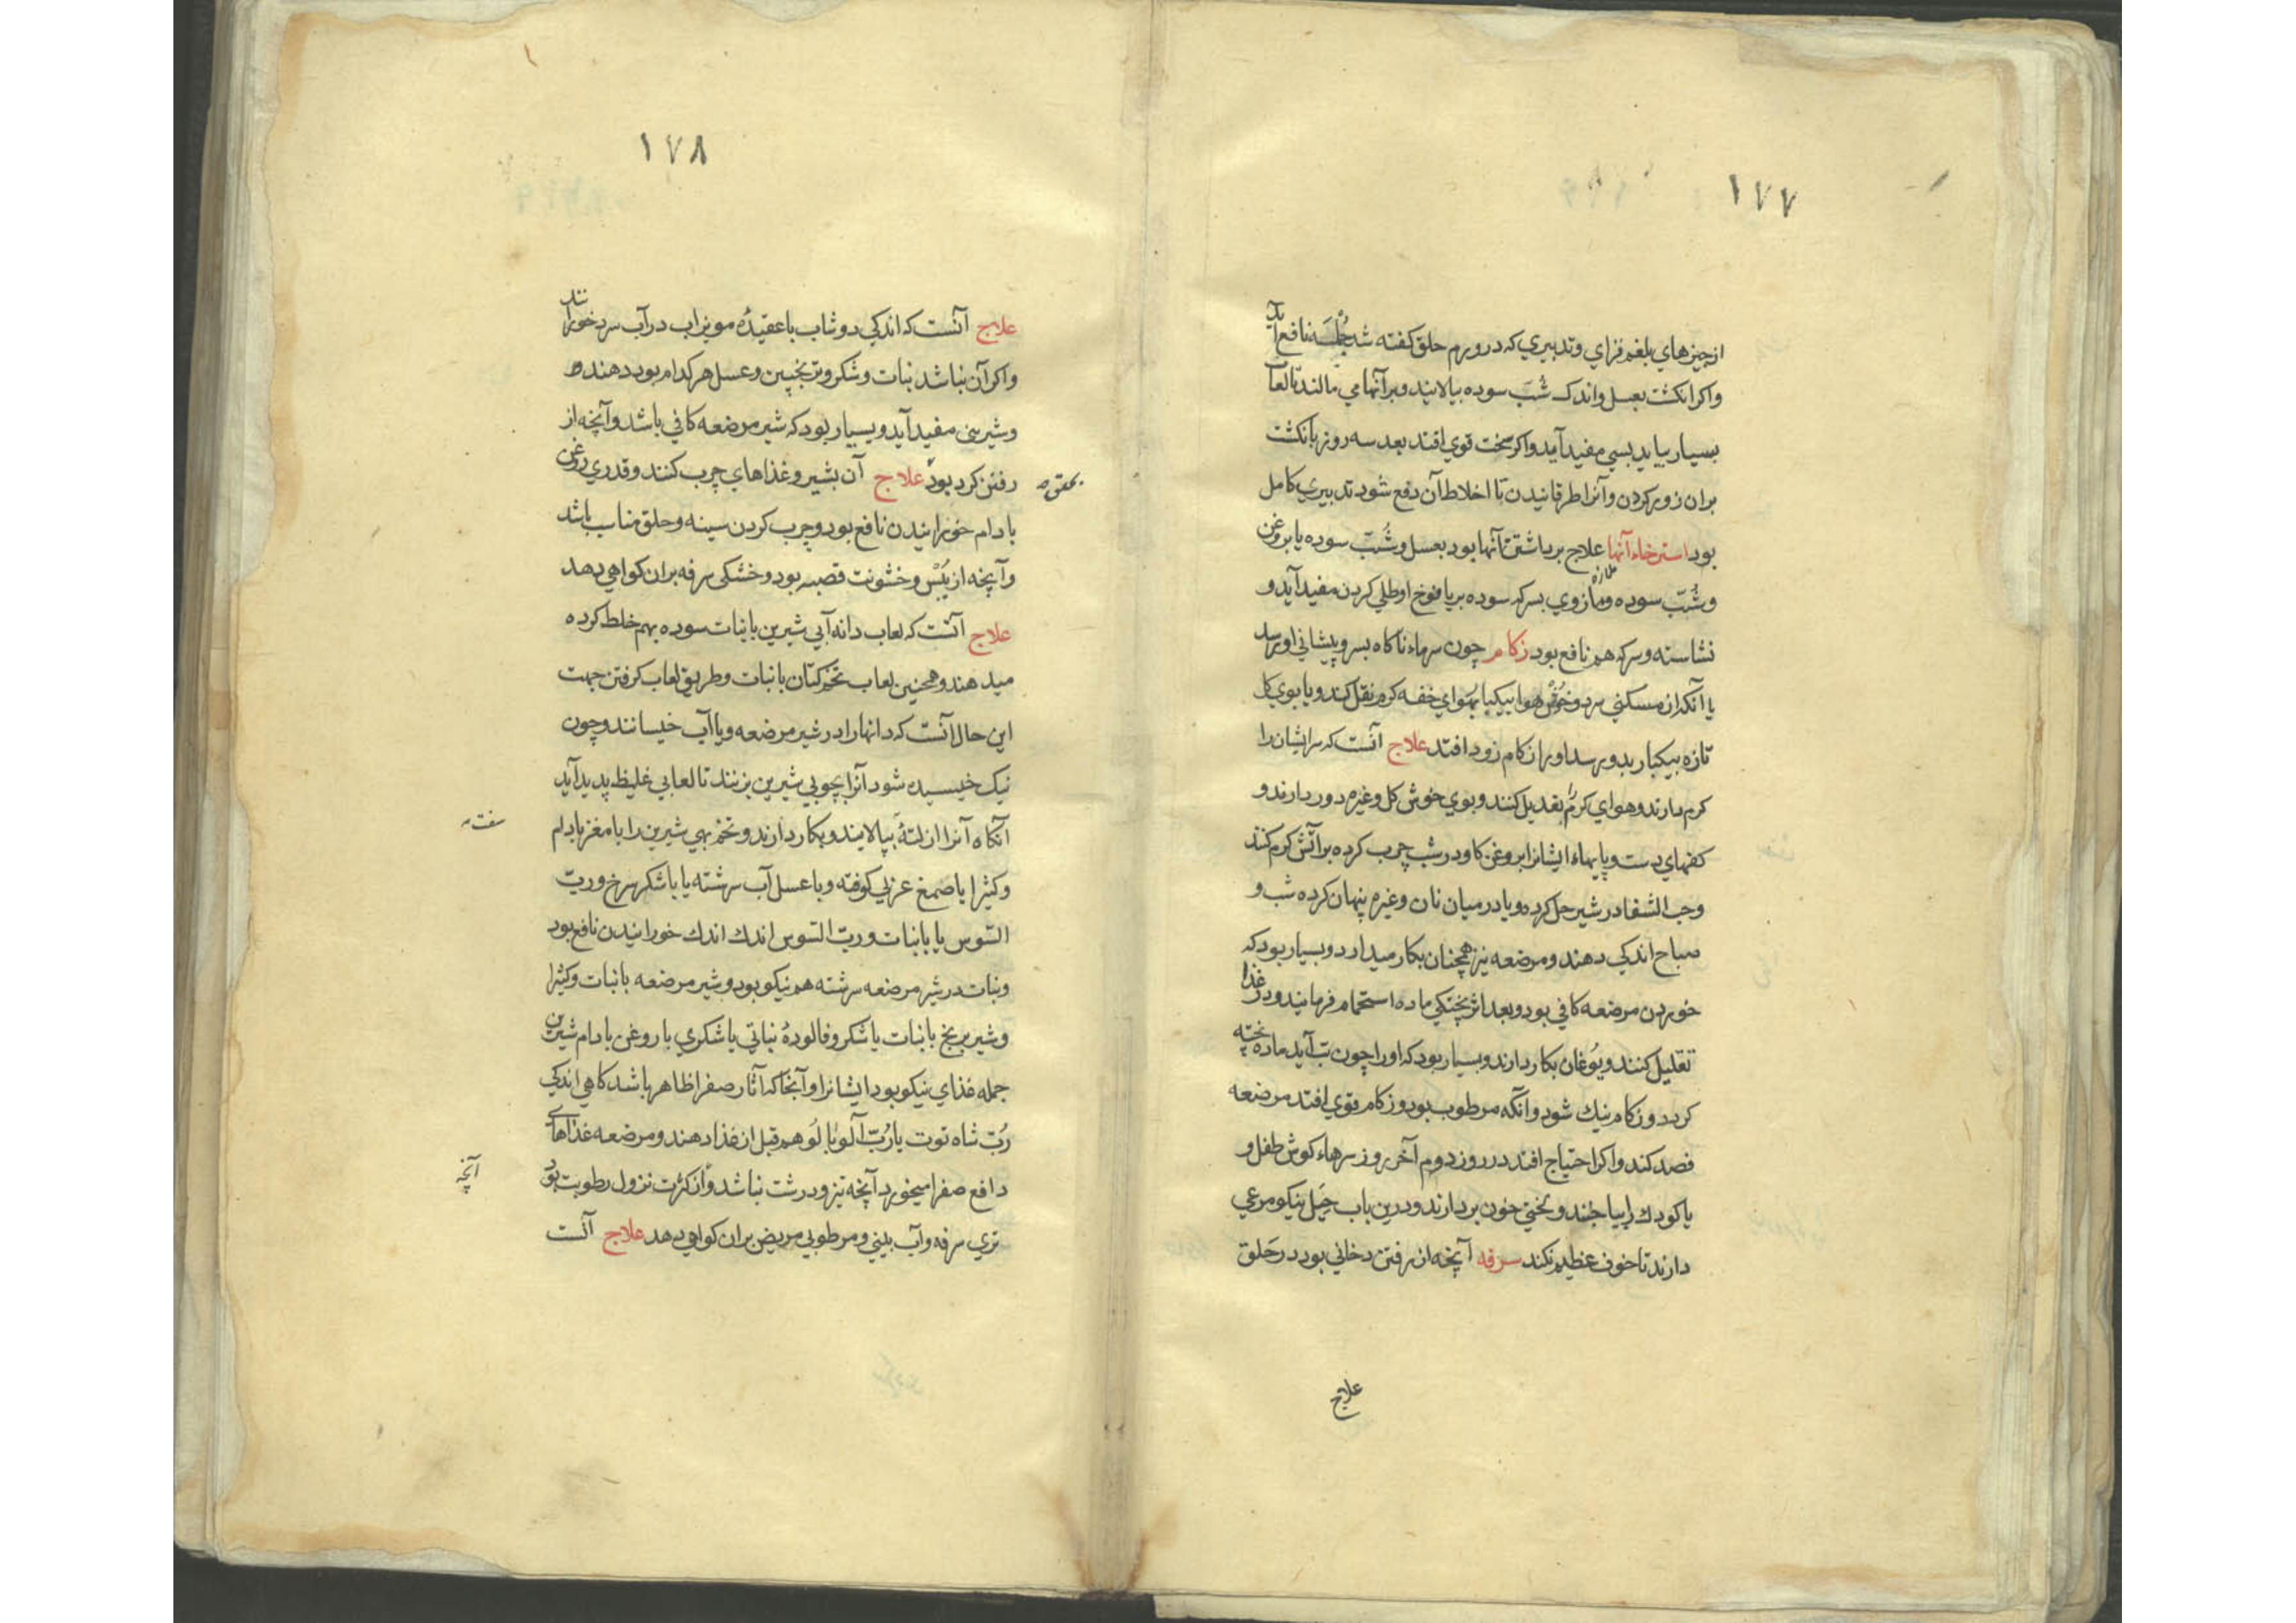 ۱۷۷
از چیزهاي بلغم فزاي و تدبیري که در ورم حلق کفته شد جُمْلَه نافع آید
واکر انکشت بعسل و اندك شَبّ سوده بیالایند و برآنها می مالند تا لعاب
بسیار بیاید بسی مفید آید واکر سخت قوي افتد بعد سه روز بانکشت
بران زور کردن و آنرا طرقانیدن تا اخلاط آن دفع شود تدبیري کامل
بود استرخاء آنها علاج برداشتن آنها بود بعسل و شَبّ سوده یا بروغن
و شَبّ سوده و مازوي بسرکه سوده بر یافوخ او طلي کردن مفید آید و
ملازه
نشاسته و سرکه هم نافع بود زکام چون سرماء ناکاه بسر و پیشانی او رسد
یا آنکه از مسکنی سرد و خوش هوا بیکبار بهواي خفه کرم نقل کند و یا بوي کل
تازه بیکبار بدو رسد او را زکام زود افتد علاج آنست که سر ایشان را
کرم دارند و هواي کرم را بتعدیل کنند و بوي خوش کل و غیره دور دارند و
کفهاي دست و پایهاء ایشانرا بروغن کاو در شب چرب کرده بر آتش کرم کنند
و حب الشفا در شیر حل کرده و یا در میان نان و غیره پنهان کرده شب و
صباح اندکي دهند و مرضعه نیز همچنان بکار میدارد و بسیار بود که
خوردن مرضعه کافي بود و بعد اثر پختکي ماده استحمام فرمایند و در غذا
تقلیل کنند و یوغان بکار دارند و بسیار بود که او را چون تب آید ماده پخته
کردد و زکام نیك شود و آنکه مرطوب بود و زکام قوي افتد مرضعه
فصد کند و اکر احتیاج افتد در روز دوم آخر روز سرهاء کوش طفل و
یا کودك را بیاجند و لختي خون بردارند و درین باب حِیَل نیکو مرعي
دارند تا خوف عظیم نکند سرفه آنچه از رفتن دخاني بود در حلق
علاج
۱۷۸
علاج آنست که اندکي دوشاب یا عقیدهٔ مویزاب در آب سرد خورانند
و اکر آن نباشد نبات و شکر و ترنجبین و عسل هر کدام بود دهند
و شیرینی مفید آید و بسیار بود که شیر مرضعه کافي باشد و آنچه از
رفتن کرد بود علاج آن بشیر و غذاهاي چرب کنند و قدري روغن
بادام خورانیدن نافع بود و چرب کردن سینه و حلق مناسب باشد
و آنچه از یُبْس و خشونت قصبه بود و خشکی سرفه بران کواهي دهد
علاج آنست که لعاب دانه آبي شیرین با نبات سوده بهم خلط کرده
میدهند و همچنین لعاب تخم کتان با نبات و طریق لعاب کرفتن جهت
این حال آنست که دانها را در شیر مرضعه و یا آب خیسانند و چون
نیك خیسیده شود آنرا بچوبي شیرین بزنند تا لعابي غلیظ پدید آید
آنکاه آنرا از لتهٔ بپالایند و بکار دارند و تخم بهي شیرین را با مغز بادام
و کثیرا یا صمغ عربي کوفته و با عسل آب سرشته یا با شکر سرخ و ربّ
السّوس یا با نبات و ربّ السّوس اندك اندك خورانیدن نافع بود
و نبات در شیر مرضعه سرشته هم نیکو بود و شیر مرضعه با نبات و کثیرا
و شیر برنج با نبات یا شکر و فالودهٔ نباتي یا شکري با روغن بادام شیرین
جمله غذاي نیکو بود ایشانرا و آنجا که آثار صفرا ظاهر باشد کاهي اندکي
رُبّ شاه توت یا رُبّ آلو یا لو هم قبل از غذا دهند و مرضعه غذاهاي
دافع صفرا میخورد آنچه تیز و درشت نباشد و از کثرت نزول رطوبت بود
آنچه
تري سرفه و آب بیني و مرطوبي مریض بران کواهي دهد علاج آنست